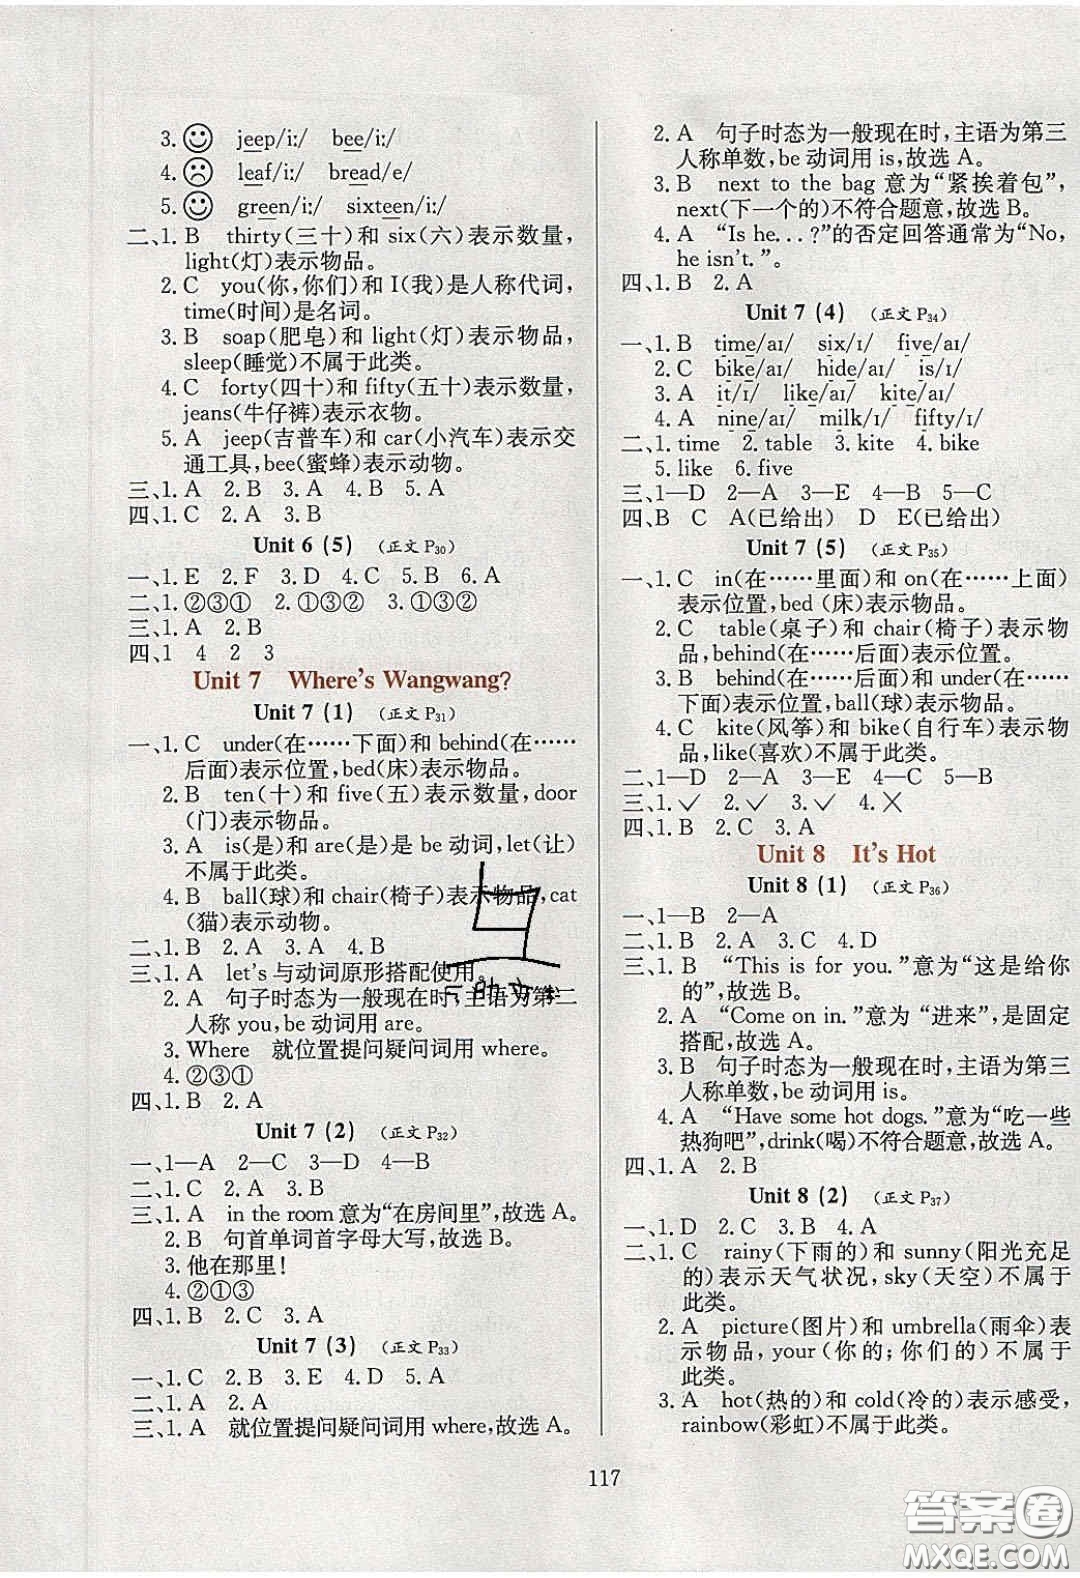 3. jeep/iː/ bee/iː/
4. leaf/iː/ bread/e/
5. green/iː/ sixteen/iː/
二、1. B thirty(三十)和 six(六)表示数量,
light(灯)表示物品。
2. C you(你,你们)和 I(我)是人称代词,
time(时间)是名词。
3. B soap(肥皂)和 light(灯)表示物品,
sleep(睡觉)不属于此类。
4. C forty(四十)和 fifty(五十)表示数量,
jeans(牛仔裤)表示衣物。
5. A jeep(吉普车)和 car(小汽车)表示交
通工具,bee(蜜蜂)表示动物。
三、1. A 2. B 3. A 4. B 5. A
四、1. C 2. A 3. B
Unit 6 (5) (正文 P30)
一、1. E 2. F 3. D 4. C 5. B 6. A
二、1. ②③① 2. ①③② 3. ①③②
三、1. A 2. B
四、1 4 2 3
Unit 7 Where's Wangwang?
Unit 7 (1) (正文 P31)
一、1. C under(在……下面)和 behind(在……
后面)表示位置,bed(床)表示物品。
2. B ten(十)和 five(五)表示数量,door
(门)表示物品。
3. A is(是)和 are(是)是 be 动词,let(让)
不属于此类。
4. B ball(球)和 chair(椅子)表示物品,cat
(猫)表示动物。
二、1. B 2. A 3. A 4. B
三、1. A let's 与动词原形搭配使用。
2. A 句子时态为一般现在时,主语为第二
人称 you,be 动词用 are。
3. Where 就位置提问疑问词用 where。
4. ②③①
四、1. B 2. A
Unit 7 (2) (正文 P32)
一、1—A 2—C 3—D 4—B
二、1. C 2. A 3. B
三、1. A in the room 意为“在房间里”,故选 A。
2. B 句首单词首字母大写,故选 B。
3. 他在那里!
4. ②①③
四、1. B 2. C 3. A
Unit 7 (3) (正文 P33)
一、1. C 2. B 3. E 4. D 5. A
二、1. A 2. A
三、1. A 就位置提问疑问词用 where,故选 A。
2. A 句子时态为一般现在时,主语为第三
人称单数,be 动词用 is,故选 A。
3. B next to the bag 意为“紧挨着包”,
next(下一个的)不符合题意,故选 B。
4. A “Is he. . . ?”的否定回答通常为“No,
he isn't. ”。
四、1. B 2. A
Unit 7 (4) (正文 P34)
一、1. B time/aɪ/ six/ɪ/ five/aɪ/
2. C bike/aɪ/ hide/aɪ/ is/ɪ/
3. A it/ɪ/ like/aɪ/ kite/aɪ/
4. A nine/aɪ/ milk/ɪ/ fifty/ɪ/
二、1. time 2. table 3. kite 4. bike
5. like 6. five
三、1—D 2—A 3—E 4—B 5—C
四、B C A(已给出) D E(已给出)
Unit 7 (5) (正文 P35)
一、1. C in(在……里面)和 on(在……上面)
表示位置,bed (床)表示物品。
2. C table(桌子)和 chair(椅子)表示物
品,behind(在……后面)表示位置。
3. B behind(在……后面)和 under(在……
下面)表示位置,ball(球)表示物品。
4. C kite(风筝)和 bike(自行车)表示物
品,like(喜欢)不属于此类。
二、1—D 2—A 3—E 4—C 5—B
三、1. ✓ 2. ✓ 3. ✓ 4. ✗
四、1. B 2. C 3. A
Unit 8 It's Hot
Unit 8 (1) (正文 P36)
一、1—B 2—A
二、1. B 2. A 3. C 4. D
三、1. B “This is for you. ”意为“这是给你
的”,故选 B。
2. A “Come on in. ”意为 “进来”,是固定
搭配,故选 A。
3. B 句子时态为一般现在时,主语为第三
人称单数,be 动词用 is。
4. A “Have some hot dogs. ”意为“吃一些
热狗吧”,drink(喝)不符合题意,故选 A。
四、1. A 2. B
Unit 8 (2) (正文 P37)
一、1. D 2. C 3. B 4. A
二、1. C rainy(下雨的)和 sunny(阳光充足
的)表示天气状况,sky(天空)不属于
此类。
2. A picture(图片)和 umbrella(雨伞)表
示物品,your(你的;你们的)不属于
此类。
3. A hot(热的)和 cold(冷的)表示感受,
rainbow(彩虹)不属于此类。
117
答案圈
MXQE.COM